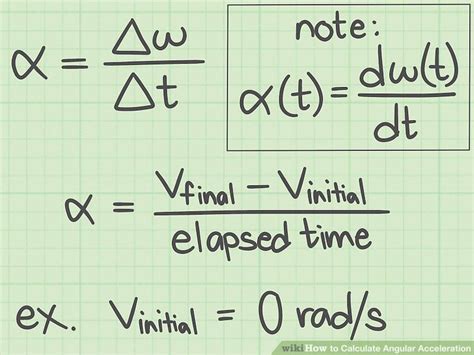 α = Δω / Δt
note:
α(t) = dω(t) / dt
α = Vfinal - Vinitial / elapsed time
ex. Vinitial = 0 rad/s
wiki How to Calculate Angular Acceleration